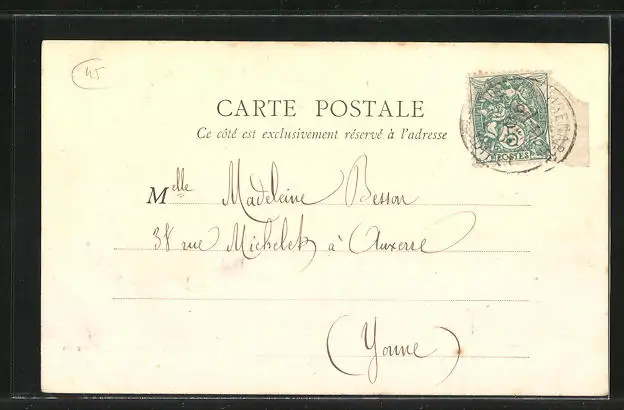 45
CARTE POSTALE
Ce côté est exclusivement réservé à l'adresse
5
POSTES
Melle Madeleine Besson
38 rue Michelet à Auxerre
(Yonne)